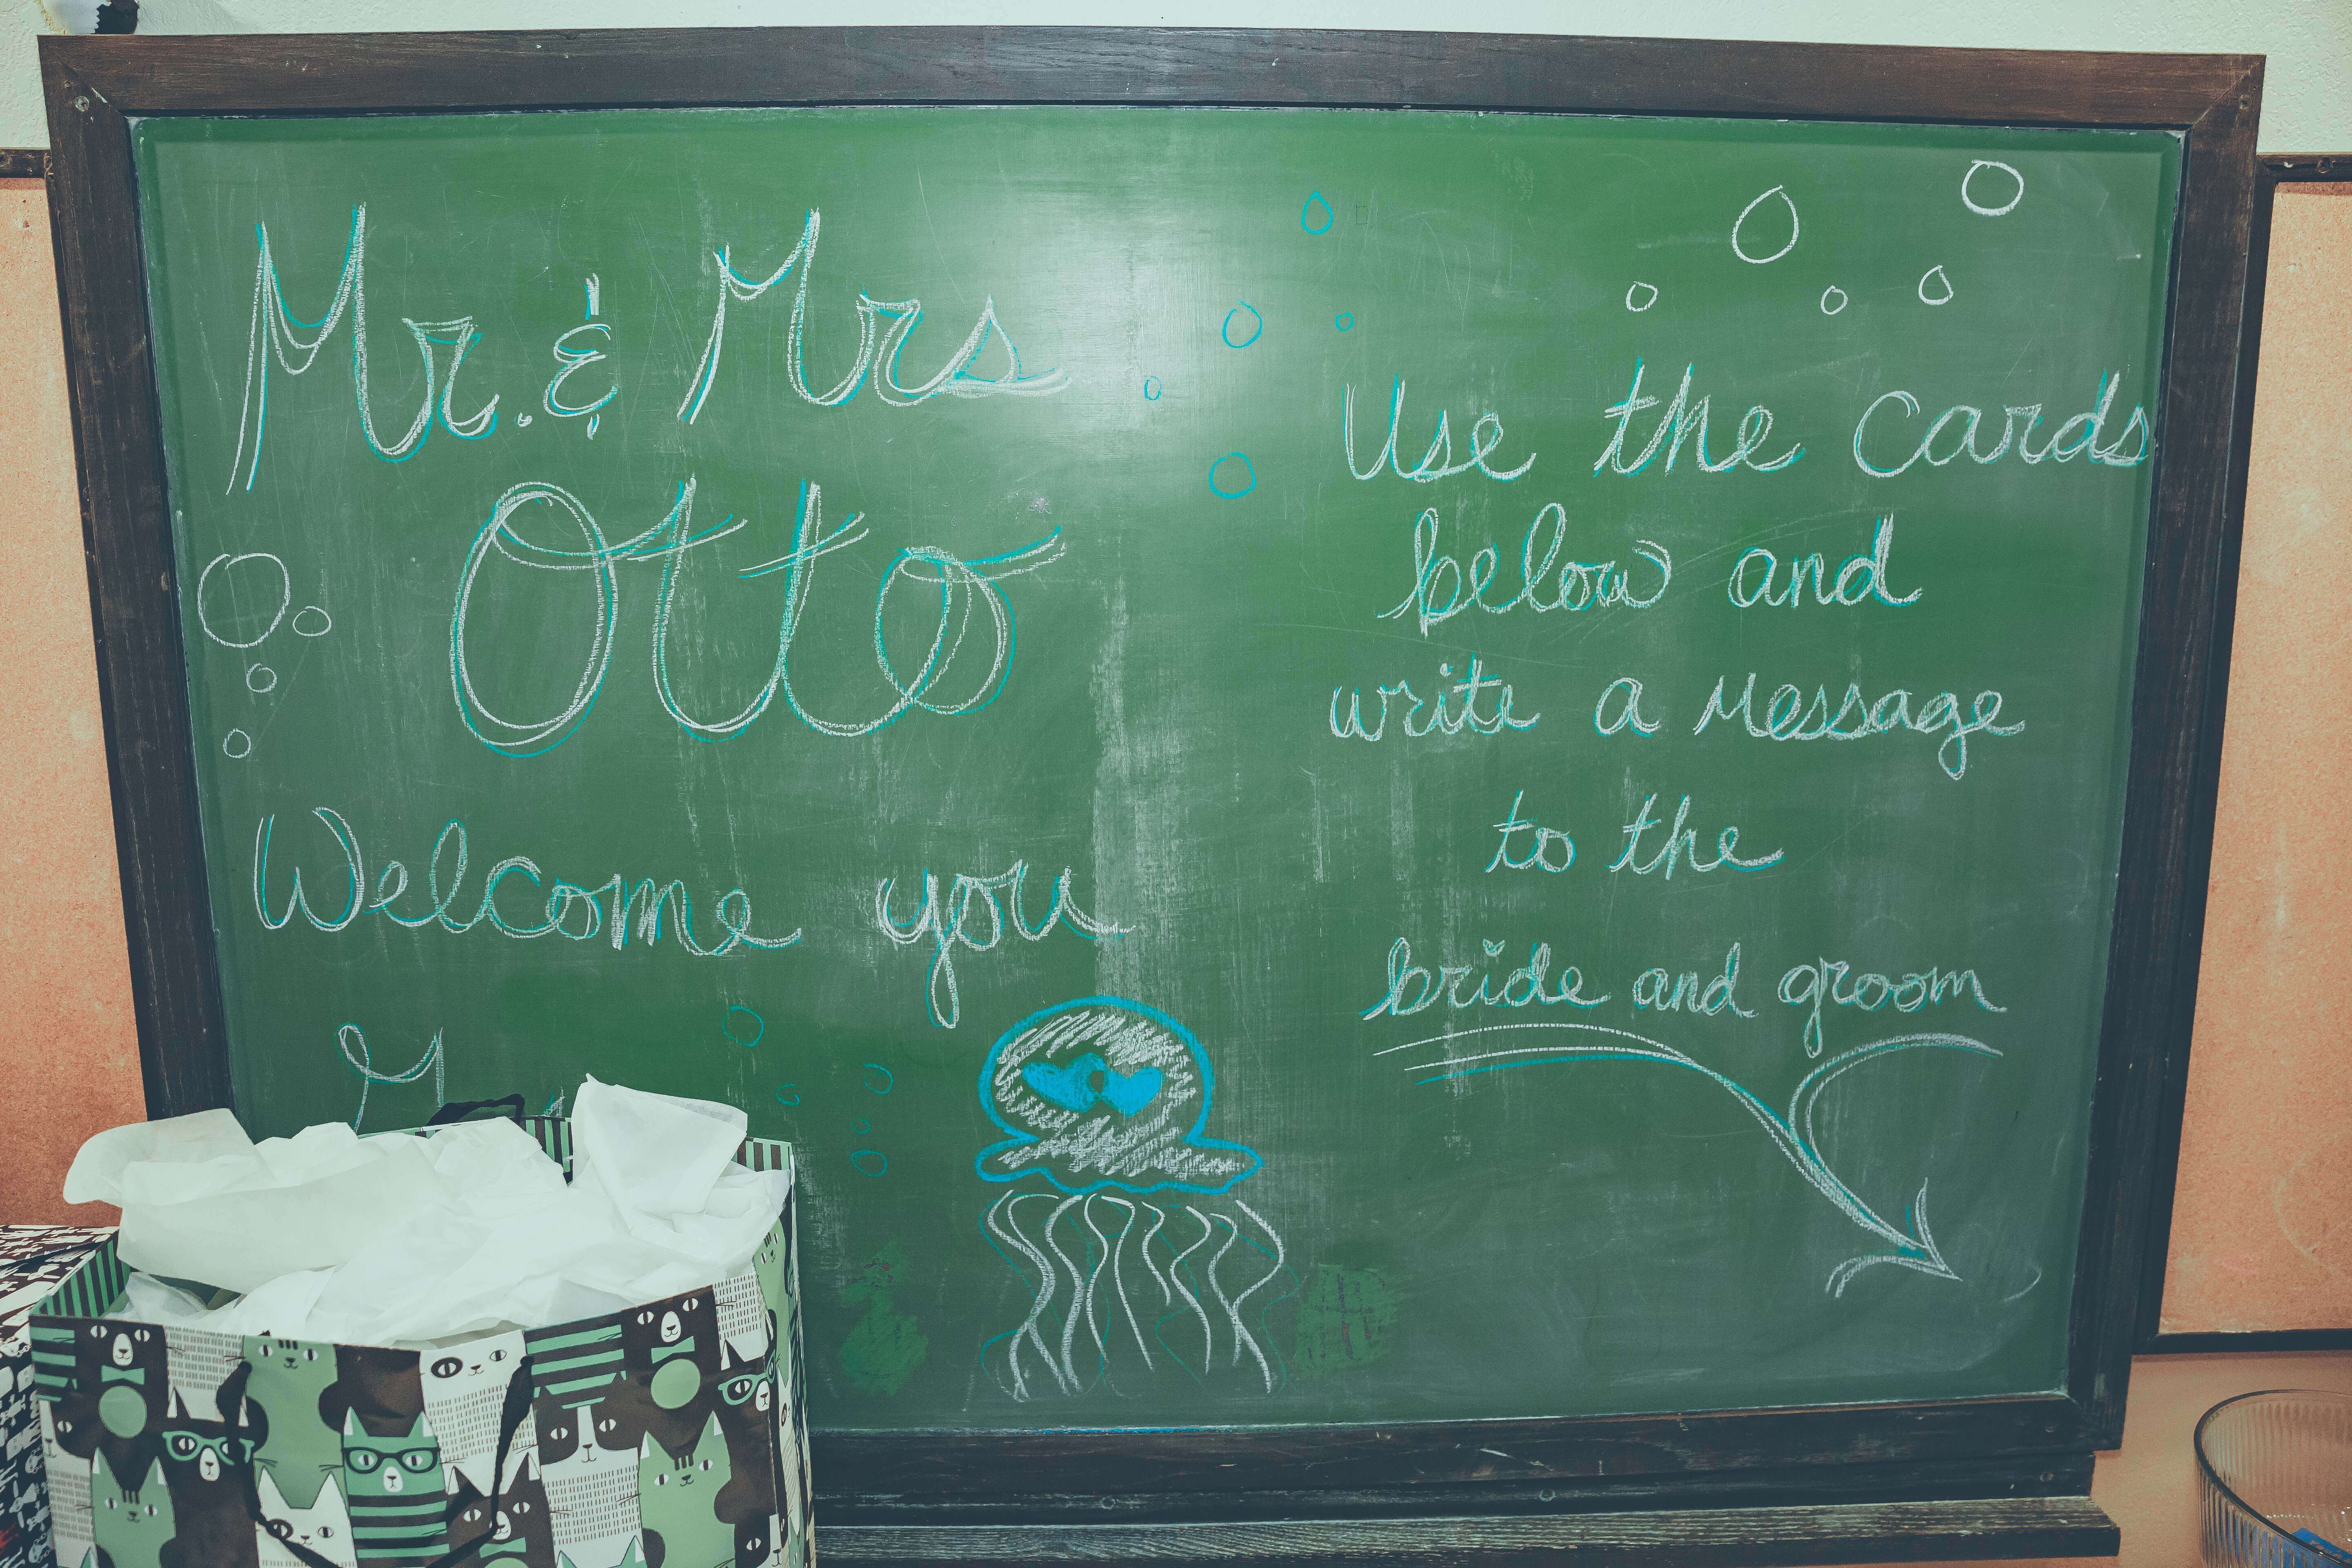 Mr. & Mrs
Otto
Welcome you
Use the cards
below and
write a Message
to the
bride and groom